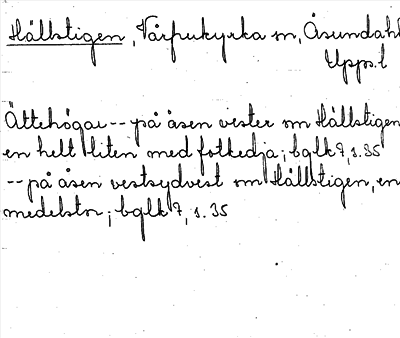 Hällstigen, Vårfrukyrka sn, Åsundahl
Upps. l
Ättehögar -- på åsen vester om Hällstigen
en helt liten med fotkedja; bglk 7, s. 35
-- på åsen vestsydvest om Hällstigen, en
medelstor; bglk 7, s. 35